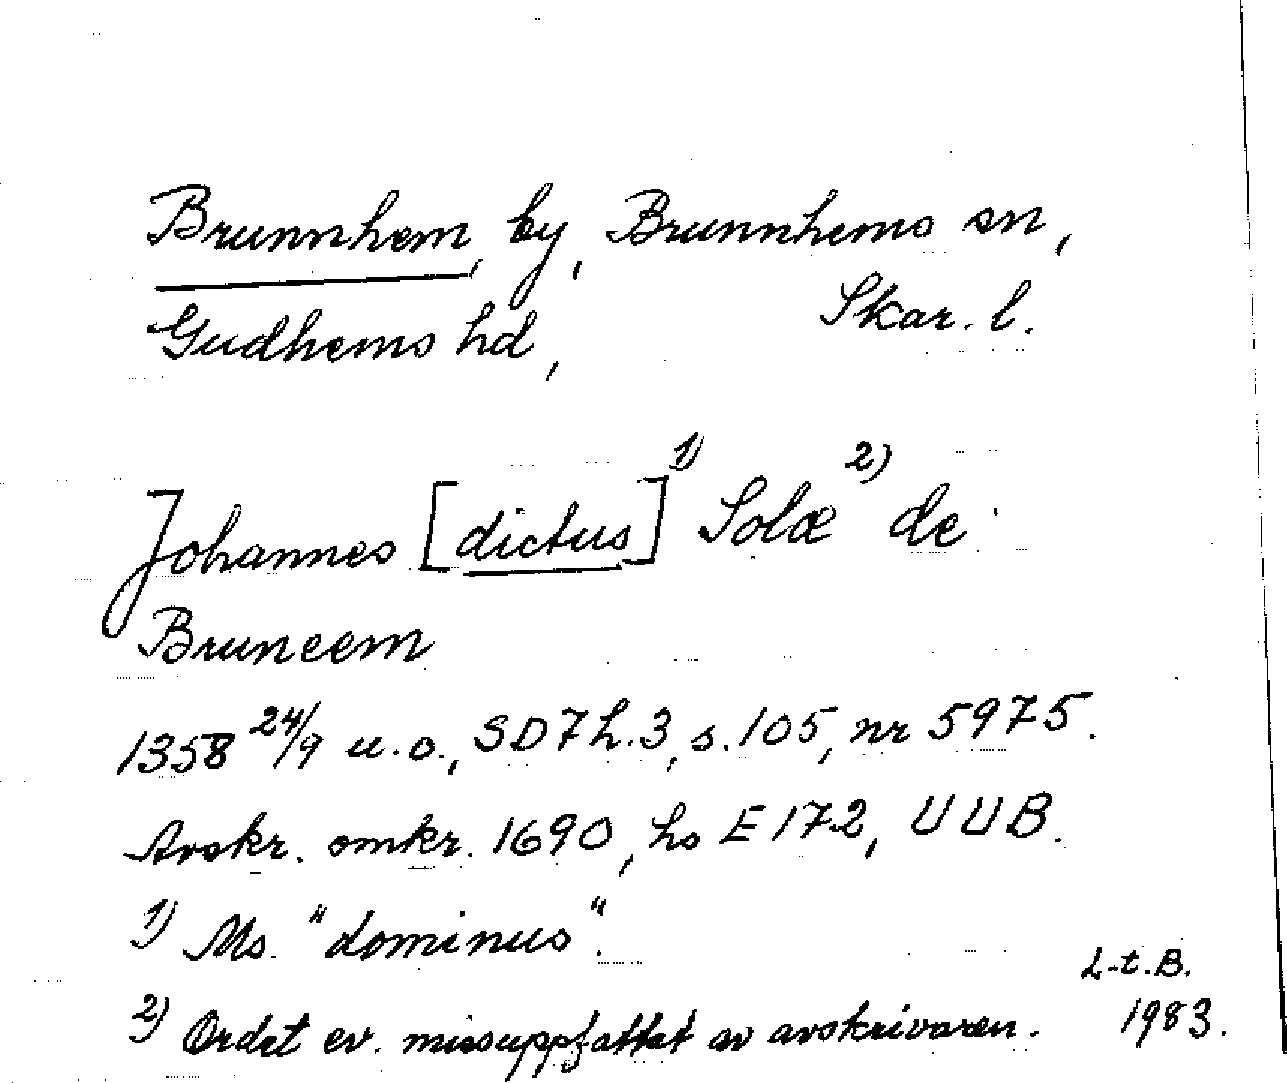 Brunnhem, by, Brunnhems sn,
Gudhems hd, Skar. l.
Johannes [dictus]1) Solæ2) de
Bruneem
1358 24/9 u.o., SD7 h.3, s.105, nr 5975.
Avskr. omkr. 1690, hs E 172, UUB.
1) Ms. "dominus".
2) Ordet ev. missuppfattat av avskrivaren.
L-t.B.
1983.